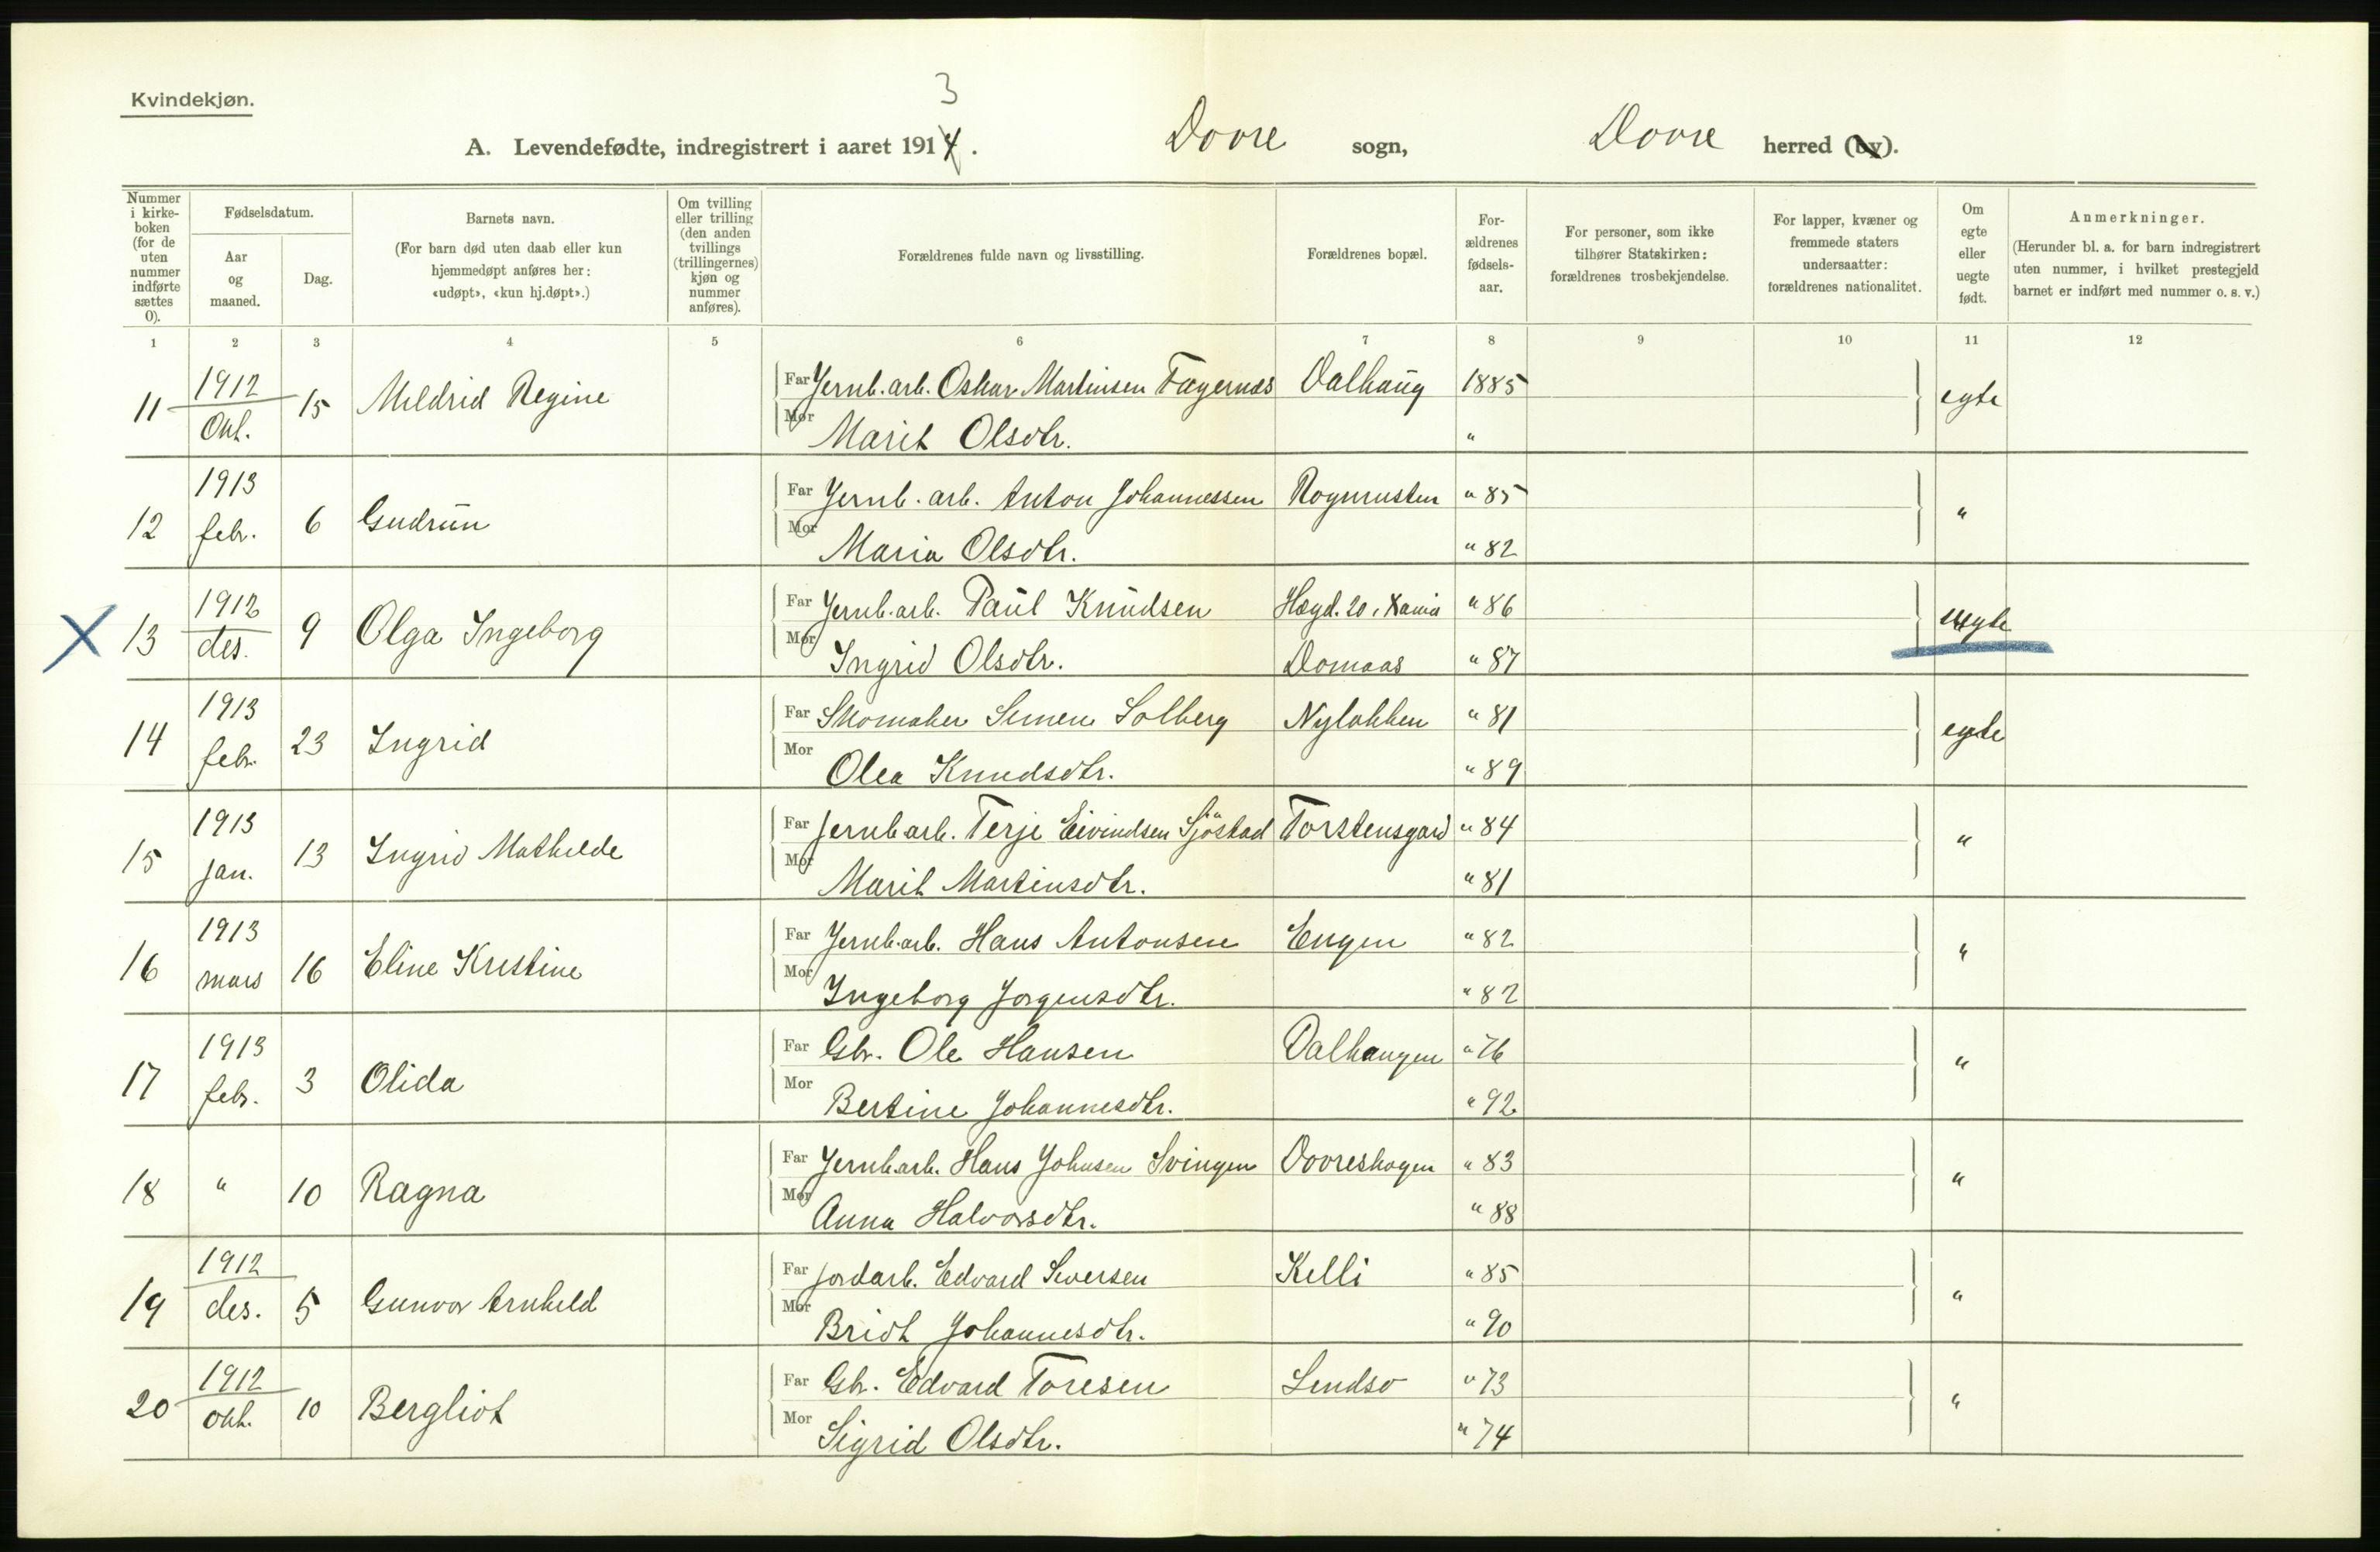 Kvindekjøn.
3
A. Levendefødte, indregistrert i aaret 1914. Dovre sogn, Dovre herred (by).
Nummer i kirkeboken (for de uten nummer indførte sættes 0).
Fødselsdatum.
Aar og maaned.
Dag.
Barnets navn.
(For barn død uten daab eller kun hjemmedøpt anføres her: «udøpt», «kun hj.døpt».)
Om tvilling eller trilling (den anden tvillings (trillingernes) kjøn og nummer anføres).
Forældrenes fulde navn og livsstilling.
Forældrenes bopæl.
Forældrenes fødselsaar.
For personer, som ikke tilhører Statskirken: forældrenes trosbekjendelse.
For lapper, kvæner og fremmede staters undersaatter: forældrenes nationalitet.
Om egte eller uegte født.
Anmerkninger.
(Herunder bl. a. for barn indregistrert uten nummer, i hvilket prestegjeld barnet er indført med nummer o. s. v.)
1 2 3 4 5 6 7 8 9 10 11 12
11 1912 Okt. 15 Mildrid Regine Far Jernb. arb. Oskar Martinsen Fagernæs Dalhaug 1885 egte
Mor Marit Olsdtr. "
12 1913 febr. 6 Gudrun Far Jernb. arb. Anton Johannessen "85 "
Mor Maria Olsdtr. "82
X 13 1912 des. 9 Olga Ingeborg Far Jernb. arb. Paul Knudsen Hegd. 20, Xania "86 uegte
Mor Ingrid Olsdtr. Domaas "87
14 1913 febr. 23 Ingrid Far Skomaker Simen Solberg Nyløkken "81 egte
Mor Olea Knudsdtr. "89
15 1913 jan. 13 Ingrid Mathilde Far Jernb arb. Terje Eivindsen Sjöstad Torstensgard "84 "
Mor Marit Martinsdtr. "81
16 1913 mars 16 Eline Kristine Far Jernb. arb. Hans Antonsen Engen "82 "
Mor Ingeborg Jørgensdtr. "82
17 1913 febr. 3 Olida Far Gbr. Ole Hansen Dalhaugen "76 "
Mor Bertine Johannesdtr. "92
18 " 10 Ragna Far Jernb. arb. Hans Johnsen Svingen Dovreskogen "83 "
Mor Anna Halvorsdtr. "88
19 1912 des. 5 Gunvor Arnhild Far jordarb. Edvard Siversen Killi "85 "
Mor Bridt Johannesdtr. "90
20 1912 okt. 10 Bergliot Far Gbr. Edvard Toresen Lindsø "73 "
Mor Sigrid Olsdtr. "74